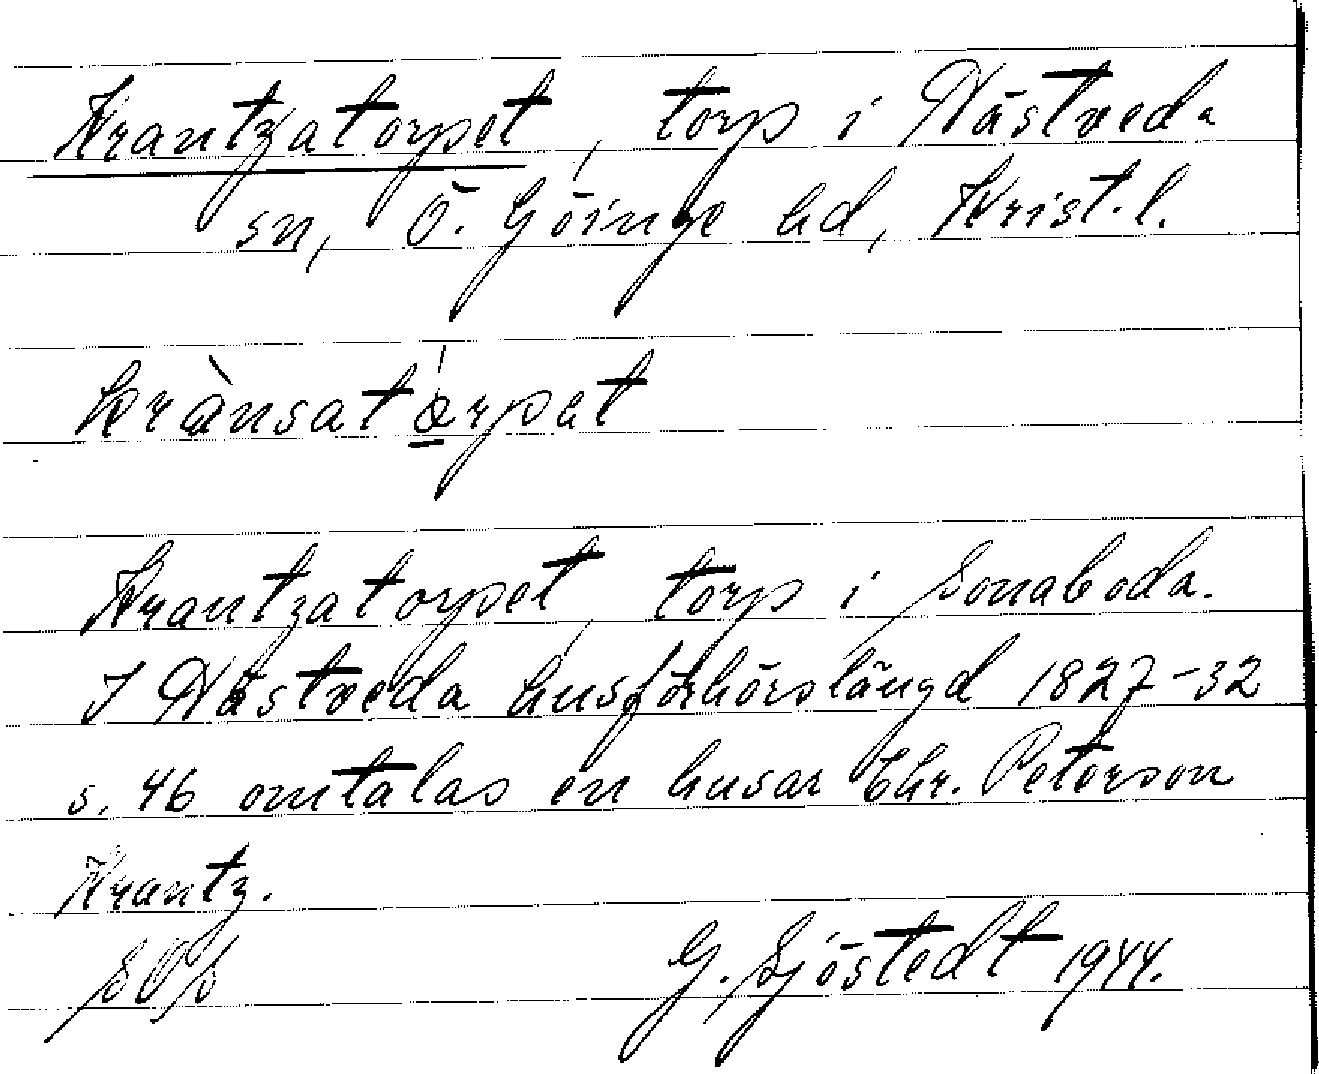 Krantzatorpet, torp i Nästveda
sn, Ö. Göinge hd, Krist. l.
krànsatórpet
Krantzatorpet, torp i Sonaboda.
I Nästveda husförhörslängd 1827-32
s. 46 omtalas en husar Chr. Peterson
Krantz.
G. Sjöstedt 1944.